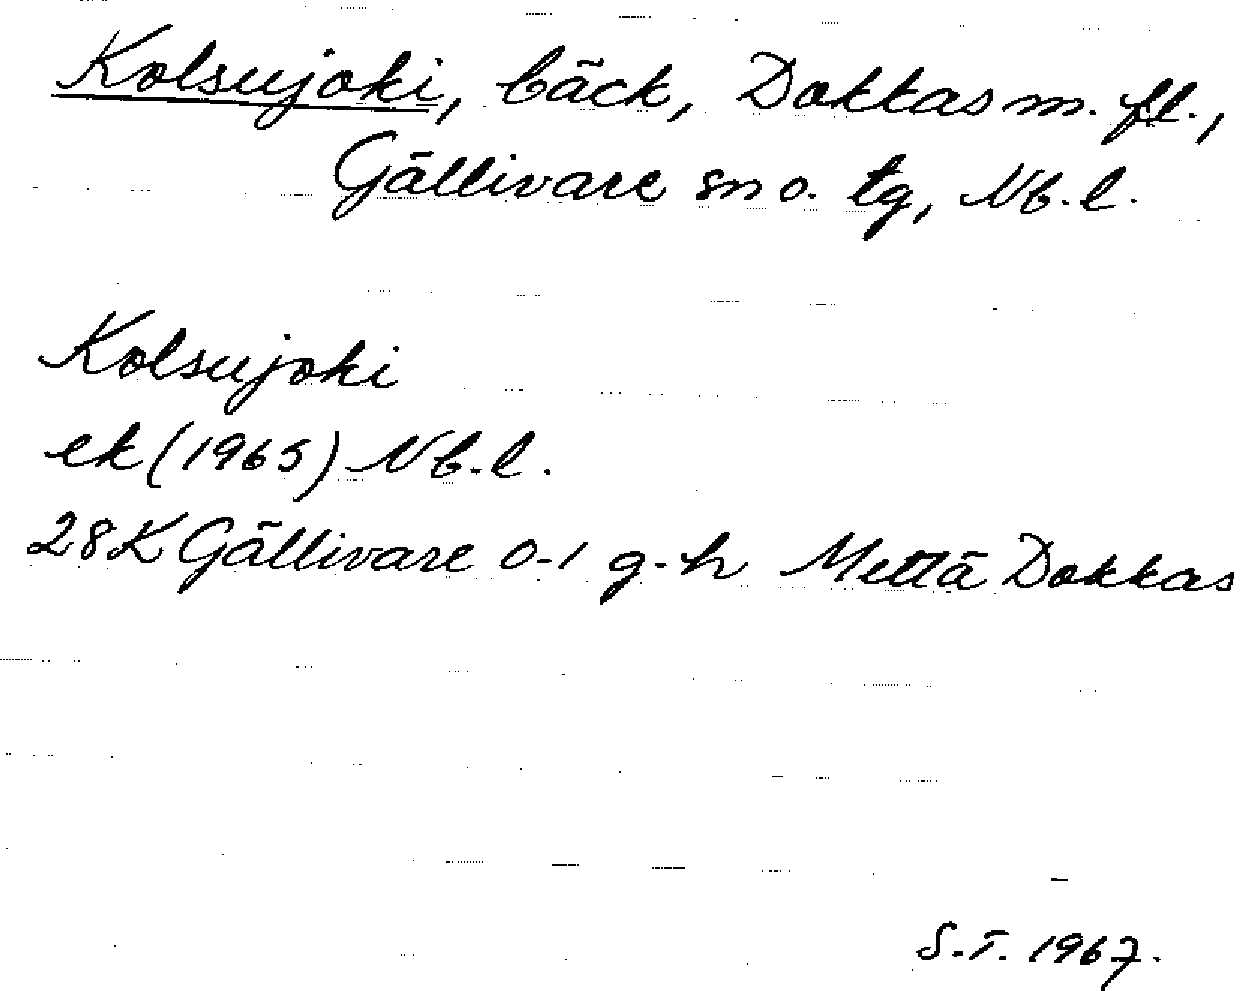 Kolsujoki, bäck, Dokkas m. fl.,
Gällivare sn o. tg, Nb. l.
Kolsujoki
ek (1965) Nb. l.
28K Gällivare 0-1 g-h Mettä Dokkas
S.T. 1967.